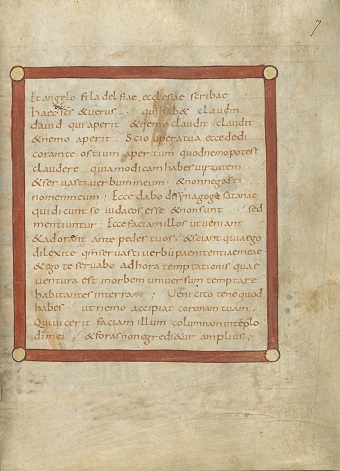 7
Et angelo filadelfiae ecclesiae scribae
haec dicit scs &verus qui hab& clauem
dauid qui aperit &nemo claudit claudit
&nemo aperit Scio opera tua ecce dedi
corante ostium apertum quodnemopotest
claudere quia modicam habes uirtutem
&seruasti uerbum meum &non negasti
nomen meum ; Ecce dabo desynagoge satanae
qui dicunt se iudaeos esse &non sunt sed
mentiuntur Ecce faciam illos ut ueniant
&adorent ante pedes tuos &sciant quia ego
dilexi te qm seruasti uerbu paenitentiae meae
&ego te seruabo ad hora temptationis quae
uentura est in orbem uniuersum temptare
habitantes in terra ; Ueni cito tene quod
habes ut nemo accipiat coronam tuam
Qui uicerit faciam illum columnam intemplo
di mei &foras non egredi&ur amplius ;